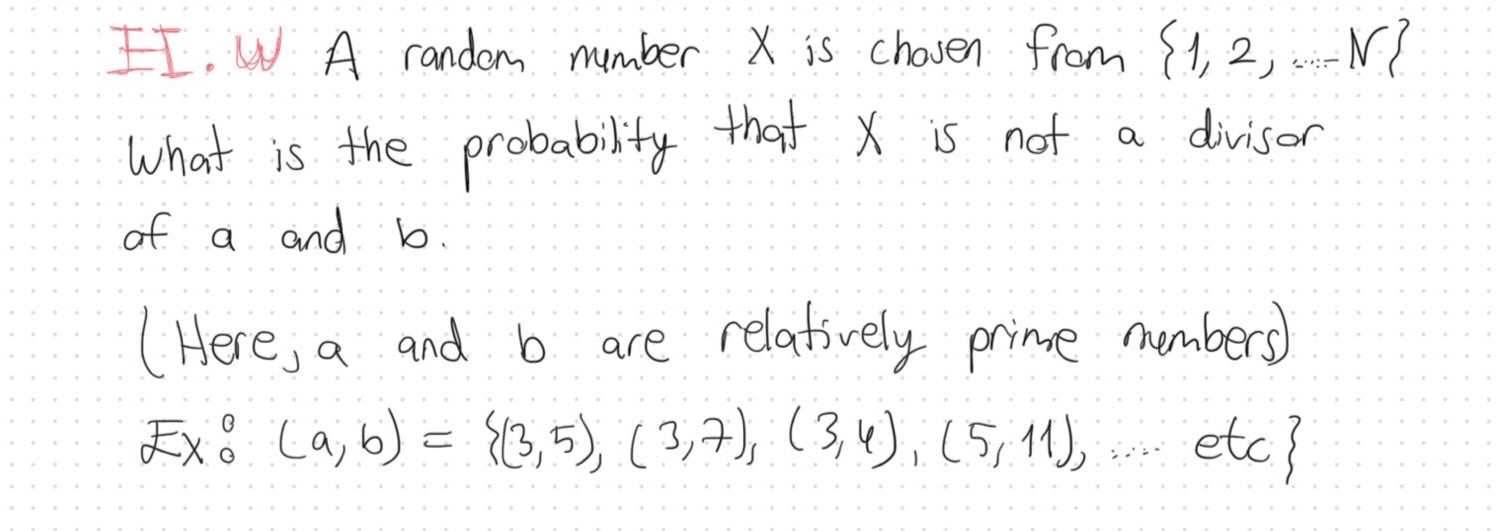 H.W A random number X is chosen from {1, 2, ..... N}
What is the probability that X is not a divisor
of a and b.
(Here, a and b are relatively prime numbers)
Ex: (a, b) = {(3,5), (3,7), (3,4), (5, 11), ..... etc}